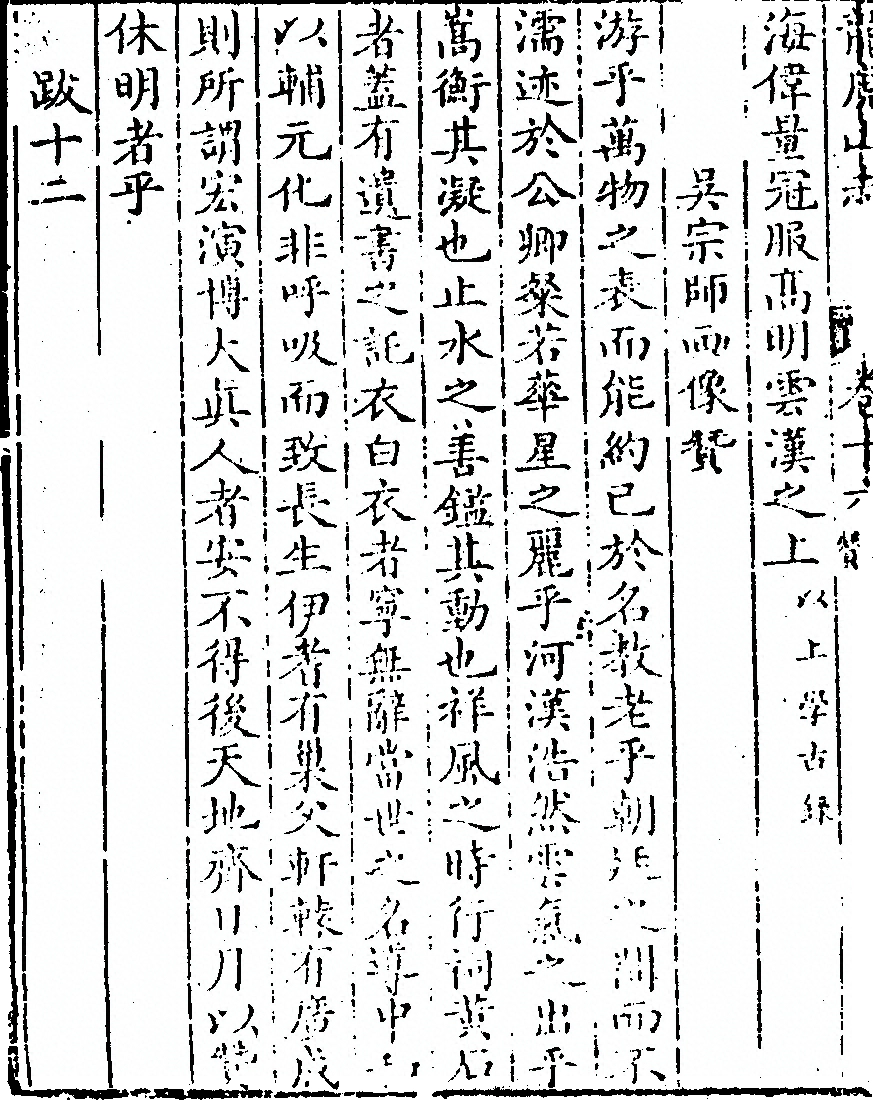 龍虎山志 卷十六 贊
海偉量冠服髙明雲漢之上 以上學古録
吳宗師畫像贊
游乎萬物之表而能約已於名教老乎朝廷之間而不
濡迹於公卿粲若華星之麗乎河漢浩然雲氣之出乎
嵩衡其凝也止水之善鑑其動也祥風之時行祠黃石
者蓋有遺書之託衣白衣者寧無辭當世之名導中
以輔元化非呼吸而致長生伊耆有巢父軒轅有廣成
則所謂宏演博大眞人者安不得後天地齊日月以贊
休明者乎
跋十二